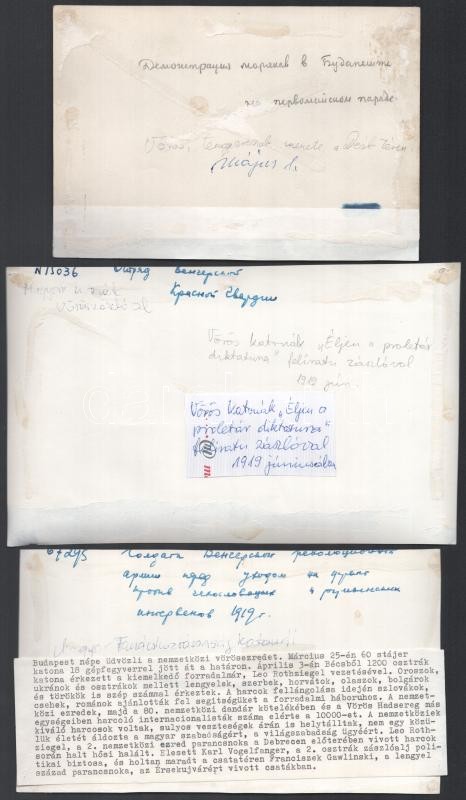 Демонстрация моряков в Будапеште
на первомайском параде.
Vörös tengerészek menete a Deák téren
Május 1.
N 15036 Отряд венгерской
Красной Гвардии
Magyar
Vörös
Vörös katonák „Éljen a proletár
diktatura" feliratu zászlóval
1919 jún.
Vörös Katonák „Éljen a
proletár diktatura"
feliratu zászlóval
1919 júniusában
67295 Солдаты Венгерской революционной
армии перед уходом на фронт
против чехословацких и румынских
интервентов 1919 г.
Magyar Tanácsköztársaság katonái
Budapest népe üdvözli a nemzetközi vörösezredet. Március 25-én 60 stájer
katona 18 gépfegyverrel jött át a határon. Április 3-án Bécsből 1200 osztrák
katona érkezett a kiemelkedő forradalmár, Leo Rothziegel vezetésével. Oroszok,
ukránok és osztrákok mellett lengyelek, szerbek, horvátok, olaszok, bolgárok
és törökök is szép számmal érkeztek. A harcok fellángolása idején szlovákok,
csehek, románok ajánlották fel segitségüket a forradalmi háboruhoz. A nemzet-
közi ezredek, majd a 80. nemzetközi dandár kötelékében és a Vörös Hadsereg más
egységeiben harcoló internacionalisták száma elérte a 10000-et. A nemzetköziek
kiváló harcosok voltak, sulyos veszteségek árán is helytálltak, nem egy közü-
lük életét áldozta a magyar szabadságért, a világszabadság ügyéért. Leo Roth-
ziegel, a 2. nemzetközi ezred parancsnoka a Debrecen előterében vivott harcok
során halt hősi halált. Elesett Karl Vogelfanger, a 2. osztrák zászlóalj poli-
tikai biztosa, és holtan maradt a csatatéren Franciszek Gawlinski, a lengyel
század parancsnoka, az Érsekujvárért vivott csatákban.